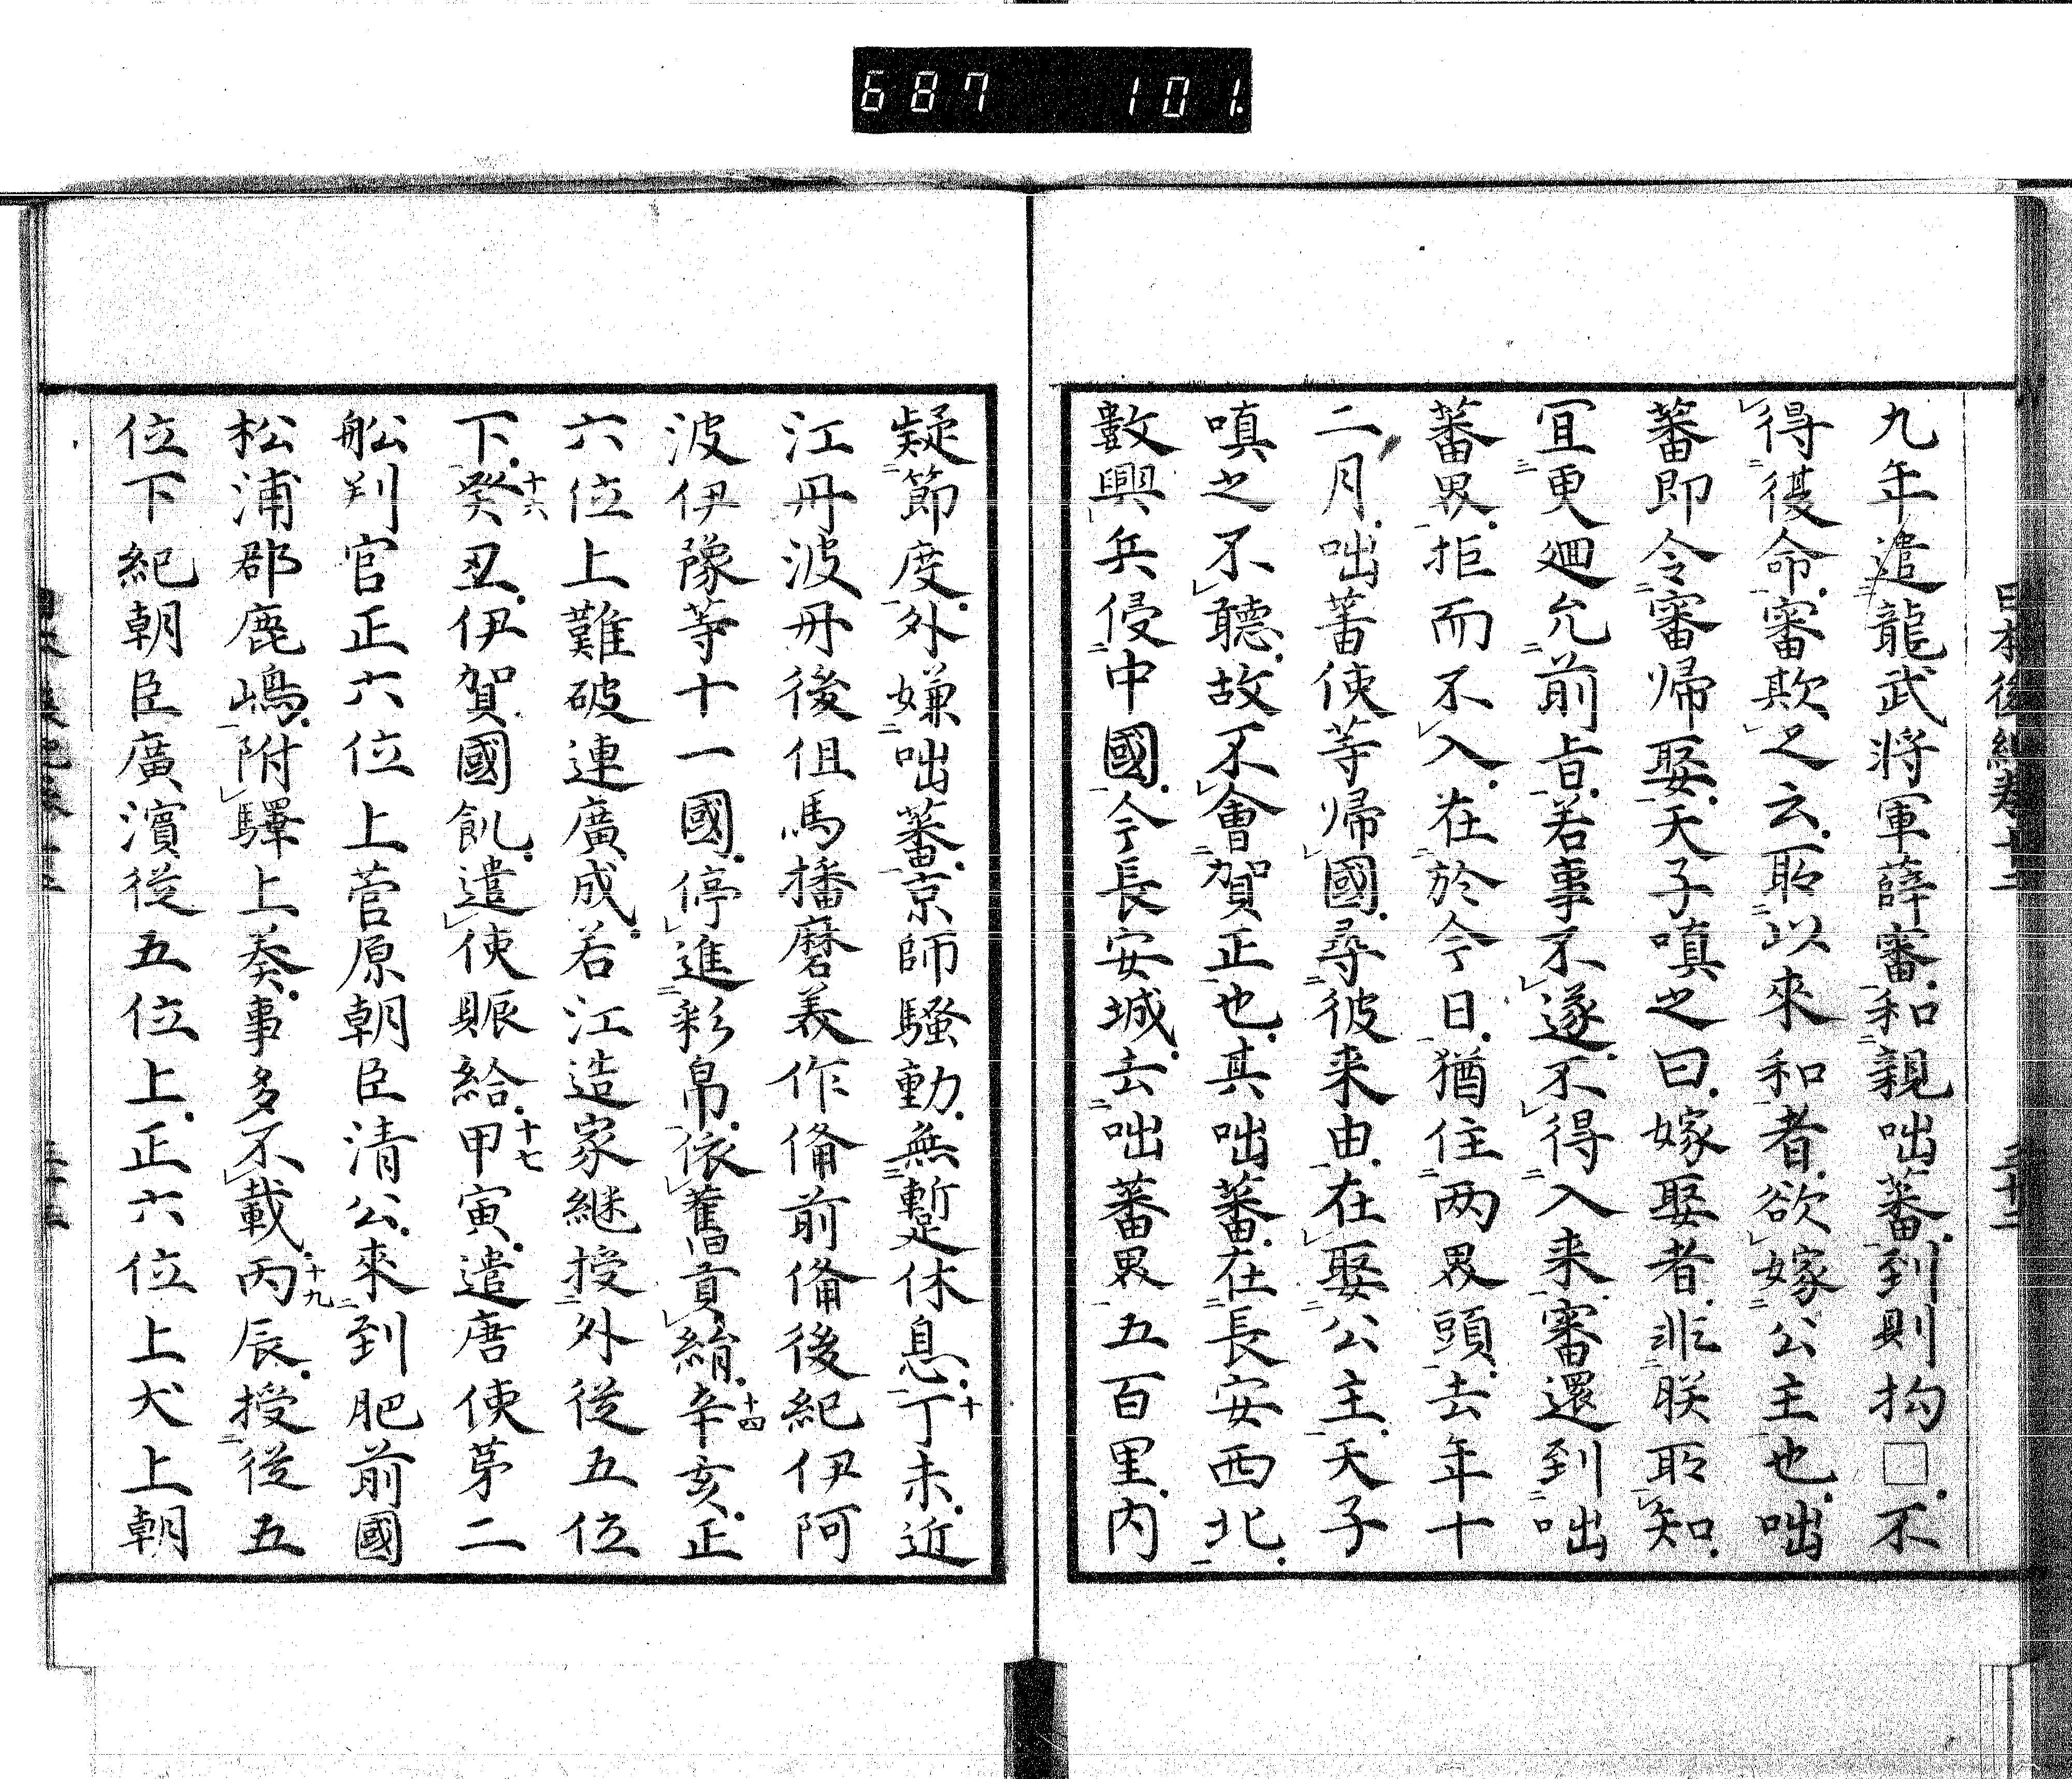 687 101.
日本後紀卷十二 三十二
九年遣龍武將軍薛審和親咄蕃到則拘□不
得復命審欺之云所以來和者欲嫁公主也咄
蕃即令審帰娶天子嗔之曰嫁娶者非朕所知
宜更廻允前旨若事不遂不得入来審還到咄
蕃界拒而不入在於今日猶住两界頭去年十
二月咄蕃使等帰國尋彼来由在娶公主天子
嗔之不聽故不會賀正也其咄蕃在長安西北
數興兵侵中國今長安城去咄蕃界五百里内
疑節度外嫌咄蕃京師騒動無蹔休息丁未近
十
江丹波丹後但馬播磨義作俻前俻後紀伊阿
波伊豫等十一國停進彩帛依舊貢絹辛亥正
十四
六位上難破連廣成若江造家継授外從五位
下癸丑伊賀國飢遣使賑給甲寅遣唐使苐二
十六 十七
舩判官正六位上菅原朝臣清公來到肥前國
松浦郡鹿嶋附驛上奏事多不載丙辰授從五
十九
位下紀朝臣廣濱從五位上正六位上犬上朝